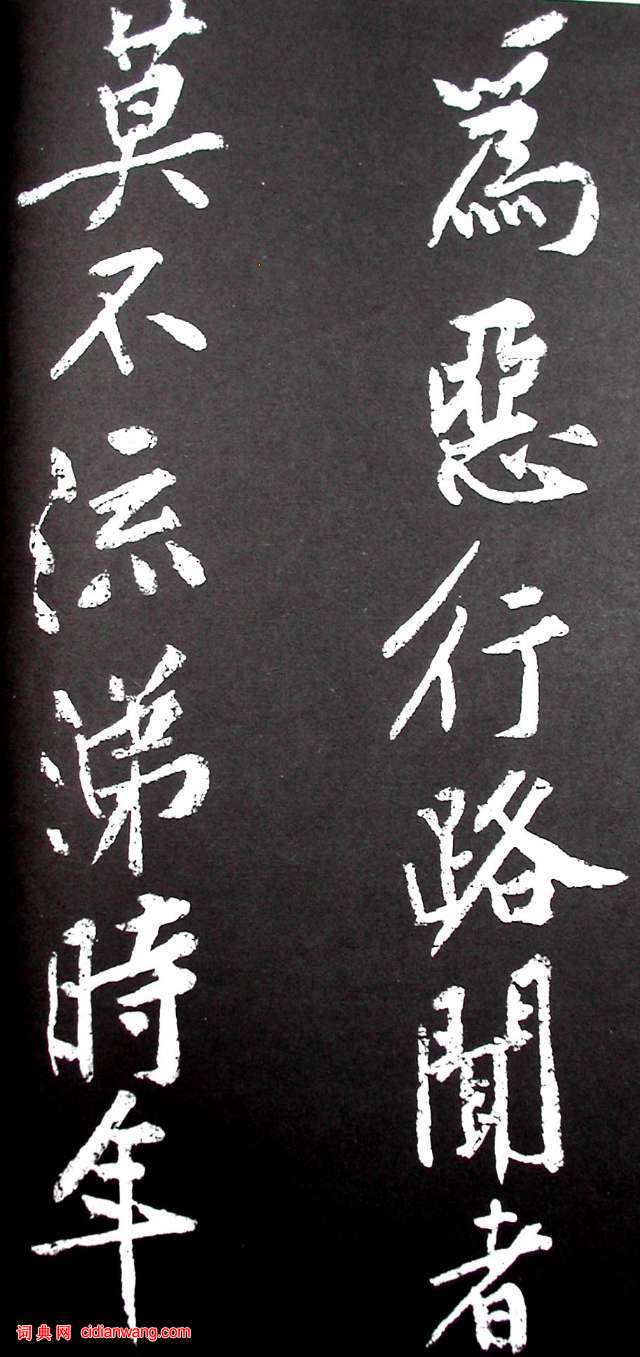 為惡行路聞者
莫不流涕時年
词典网 cidianwang.com